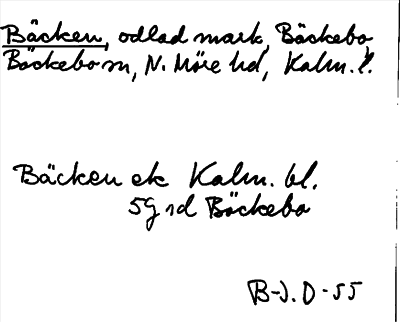 Bäcken, odlad mark, Bäckebo,
Bäckebo sn, N. Möre hd, Kalm. l.
Bäcken ek Kalm. bl.
5G rd Bäckebo
B-J. O-55